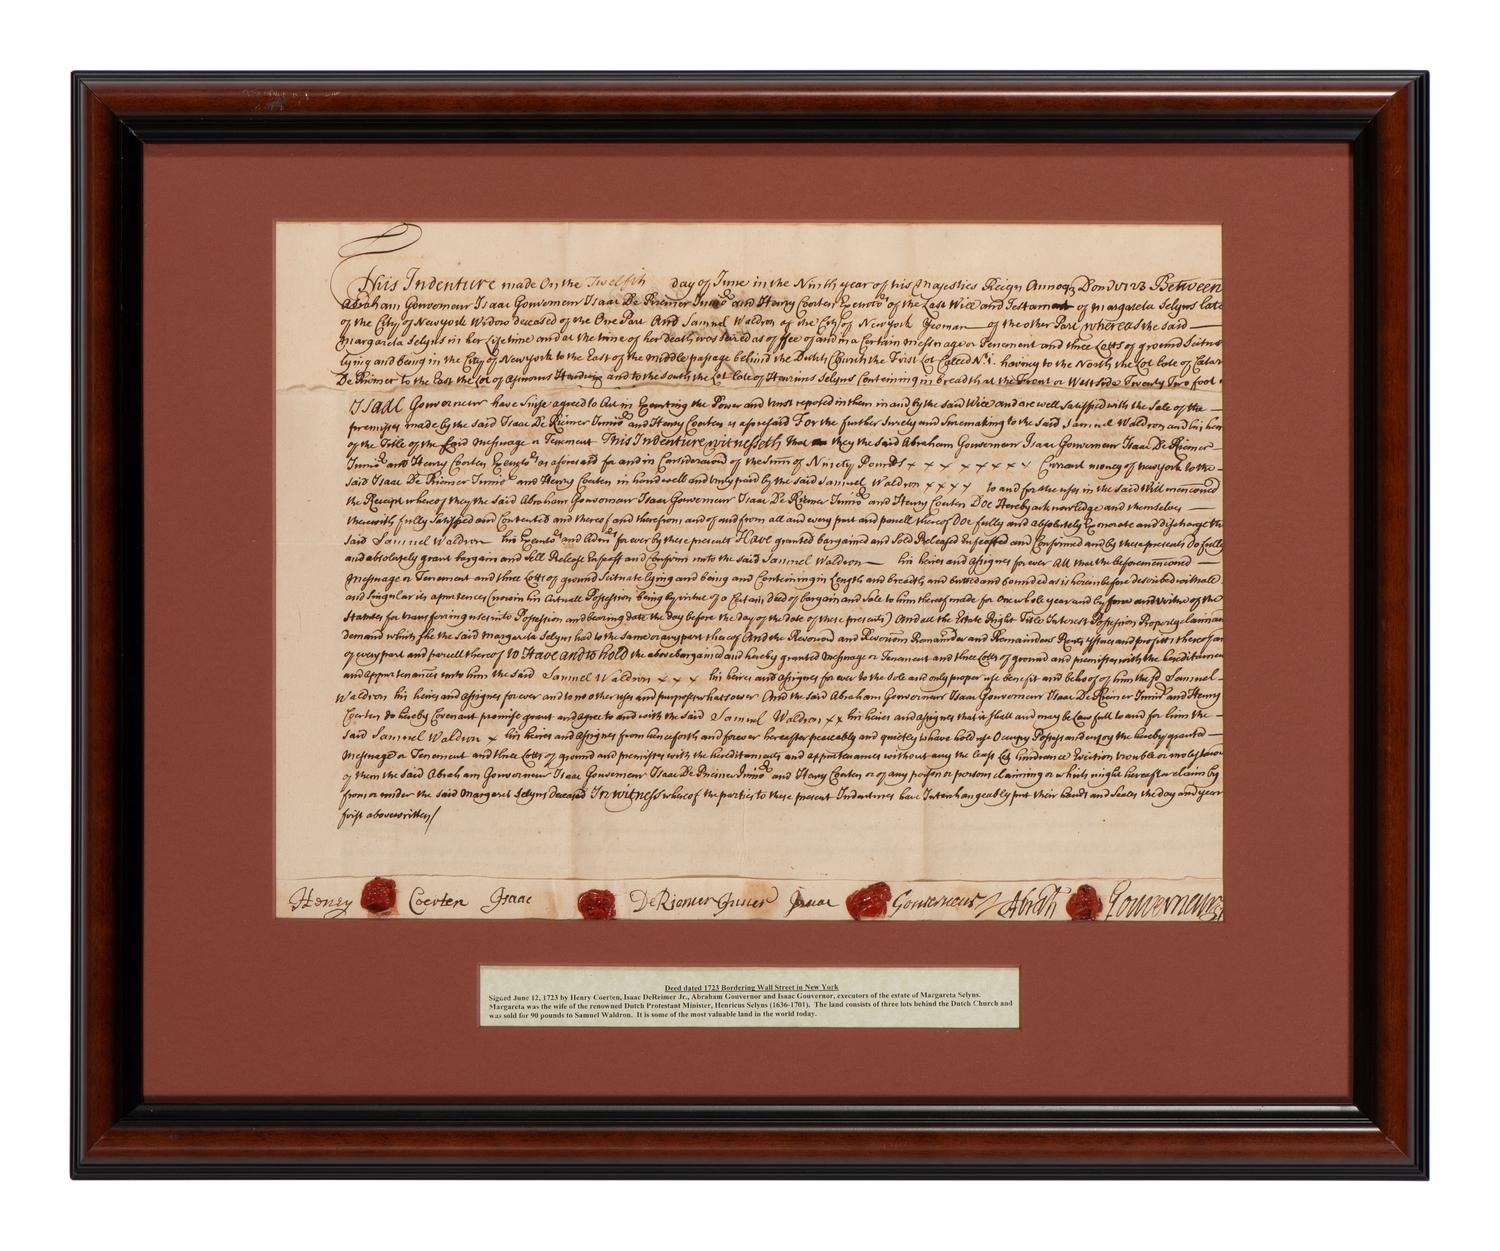 This Indenture made On the Twelfth day of June in the Ninth year of his Majesties Reign Annoq Dom 1723 Between
Abraham Gouverneur Isaac Gouverneur Isaac De Riemer Junior and Henry Coerten Executors of the Last Will and Testament of Margareta Selyns late
of the City of New york Widow deceased of the One Part And Samuel Waldron of the City of New York Yeoman of the other Part whereas the said
Margareta Selyns in her Lifetime and at the time of her death was seized as of fee of and in a Certain messuage or Tenement and three Lotts of ground Scituate
lying and being in the City of New york to the East of the middle passage behind the Dutch Church the First Lot Called No. 1. having to the North the Lot late of
De Riemer to the East the Lot of and to the South the Lot late of Selyns Containing in breadth at the Front or West side Twenty Two foot
Isaac Gouverneur have Since agreed to Act in Executing the Power and trust reposed in them in and by the said Will and are well Satisfied with the Sale of the
premises made by the said Isaac De Riemer Junior and Henry Coerten as aforesaid For the further Surety and Suremaking to the said Samuel Waldron and his heirs
of the Title of the said Messuage or Tenement This Indenture witnesseth that they the said Abraham Gouverneur Isaac Gouverneur Isaac De Riemer
Junior and Henry Coerten Executors as aforesaid for and in Consideration of the Sum of Ninety Pounds x x x x x x x x Currant money of New york to the
said Isaac De Riemer Junior and Henry Coerten in hand well and truly paid by the said Samuel Waldron x x x x to and for the uses in the said Will mentioned
the Receipt whereof they the said Abraham Gouverneur Isaac Gouverneur Isaac De Riemer Junior and Henry Coerten Doe Hereby acknowledge and themselves
therewith fully Satisfied and Contented and thereof and therefrom and of and from all and every part and parcell thereof Doe fully and absolutely Exonerate and discharge the
said Samuel Waldron his Executors and Admors for ever by these presents Have granted bargained and Sold Released Enfeoffed and Confirmed and by these presents Do fully
and absolutely grant bargain and Sell Release Enfeoff and Confirm unto the said Samuel Waldron his heires and assignes for ever All that the beforemencioned
Messuage or Tenement and three Lotts of ground Scituate lying and being and Containing in Length and breadth and butted and bounded as is herein before described with all
and Singular its apurtences (now in his Actuall Possession being by virtue of a Certain Deed of bargain and Sale to him thereof made for One whole year and by force and virtue of the
Statutes for transferring uses into Possession and bearing date the day before the day of the date of these presents) And all the Estate Right Title Interest Possession Property claim and
demand which She the said Margareta Selyns had to the Same or any part thereof And the Revercion and Revercions Remainder and Remainders Rents Issues and profits thereof and
of every part and parcell thereof To Have and to hold the above bargained and hereby granted Messuage or Tenement and three Lotts of ground and premisses with the hereditaments
and appurtenances unto him the said Samuel Waldron x x x his heires and assignes for ever to the Sole and only proper use benefit and behoof of him the sd Samuel
Waldron his heires and assignes for ever and to no other uses and purposes whatsoever And the said Abraham Gouverneur Isaac Gouverneur Isaac De Riemer Junior and Henry
Coerten do hereby Covenant promise grant and agree to and with the said Samuel Waldron x x his heires and assignes that it Shall and may be Lawfull to and for him the
said Samuel Waldron x his heires and assignes from henceforth and forever hereafter peaceably and quietly to have hold use Occupy Possess and enjoy the hereby granted
Messuage or Tenement and three Lotts of ground and premisses with the hereditaments and appurtenances without any the least Let hindrance Eviction trouble or molestation
of them the said Abraham Gouverneur Isaac Gouverneur Isaac De Riemer Junior and Henry Coerten or of any person or persons claiming or which might hereafter claim by
from or under the said Margaret Selyns Deceased In witness whereof the parties to these present Indentures have Interchangeably put their hands and Seales the day and year
first abovewritten/
Henry Coerten Isaac DeRiemer Junier Isaac Gouverneur Abrah Gouverneur
Deed dated 1723 Bordering Wall Street in New York
Signed June 12, 1723 by Henry Coerten, Isaac DeReimer Jr., Abraham Gouvernor and Isaac Gouvernor, executors of the estate of Margareta Selyns.
Margareta was the wife of the renowned Dutch Protestant Minister, Henricus Selyns (1636-1701). The land consists of three lots behind the Dutch Church and
was sold for 90 pounds to Samuel Waldron. It is some of the most valuable land in the world today.